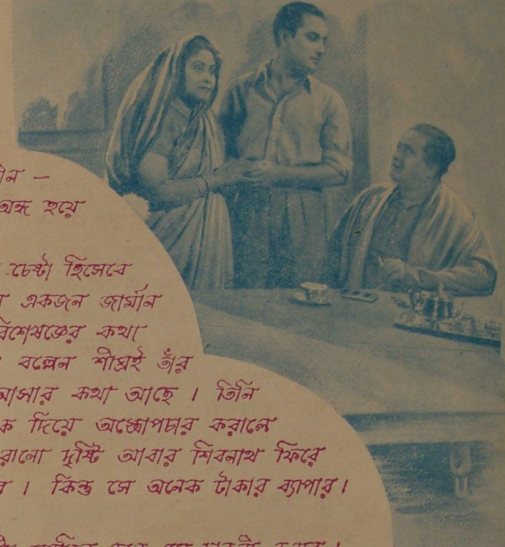 —
অন্ধ হয়ে
চেষ্টা হিসেবে
একজন জার্মান
বিশেষজ্ঞের কথা
বল্লেন শীঘ্রই তাঁর
আসার কথা আছে । তিনি
দিয়ে অস্ত্রোপচার করালে
দৃষ্টি আবার শিবনাথ ফিরে
। কিন্তু সে অনেক টাকার ব্যাপার।